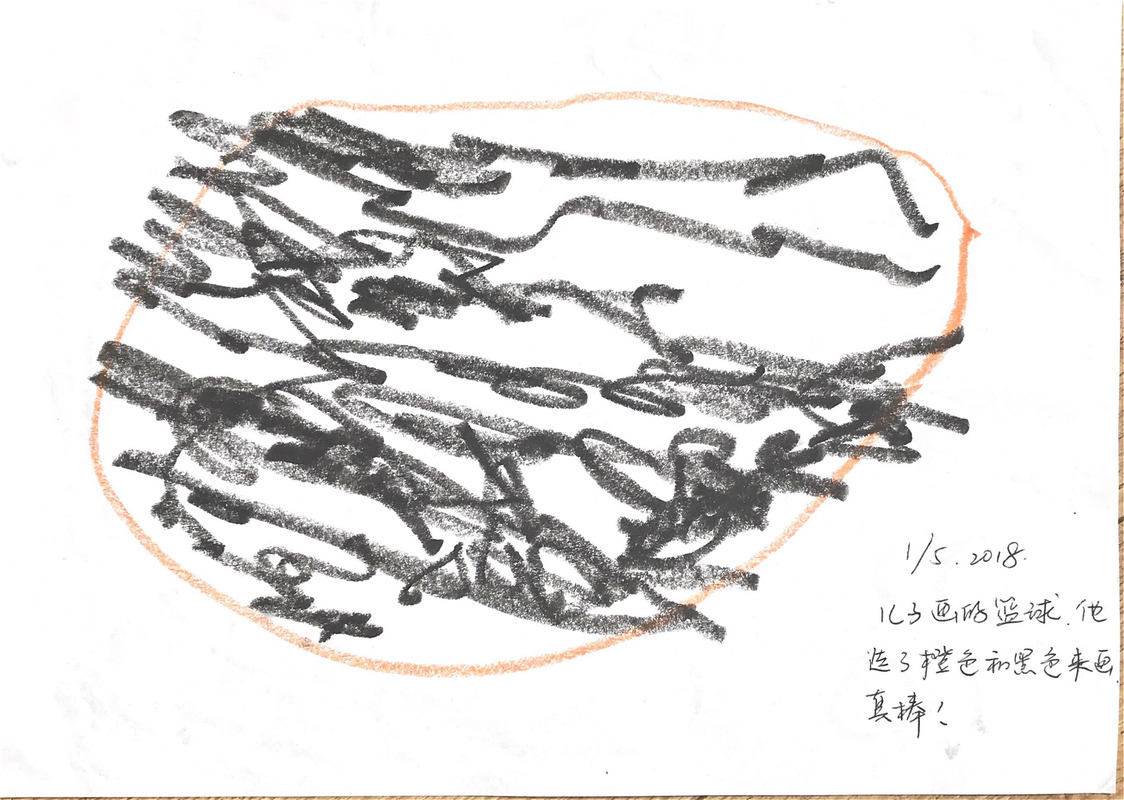 1/5.2018.
儿子画的篮球.他
选了橙色和黑色来画.
真棒！